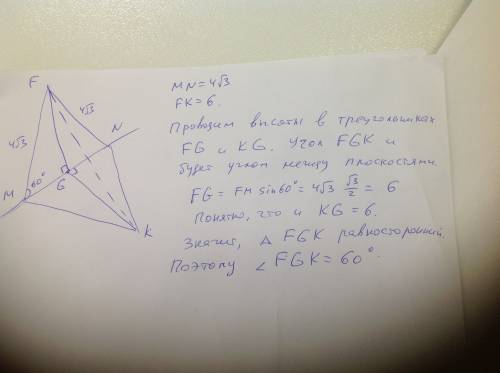 MN = 4√3
FK = 6.
Проводим высоты в треугольниках
FG и KG. Угол FGK и
будет углом между плоскостями.
FG = FM sin 60° = 4√3 √3/2 = 6
Понятно, что и KG = 6.
Значит, △ FGK равносторонний.
Поэтому ∠ FGK = 60°.
F
4√3
4√3
N
M
60°
G
K